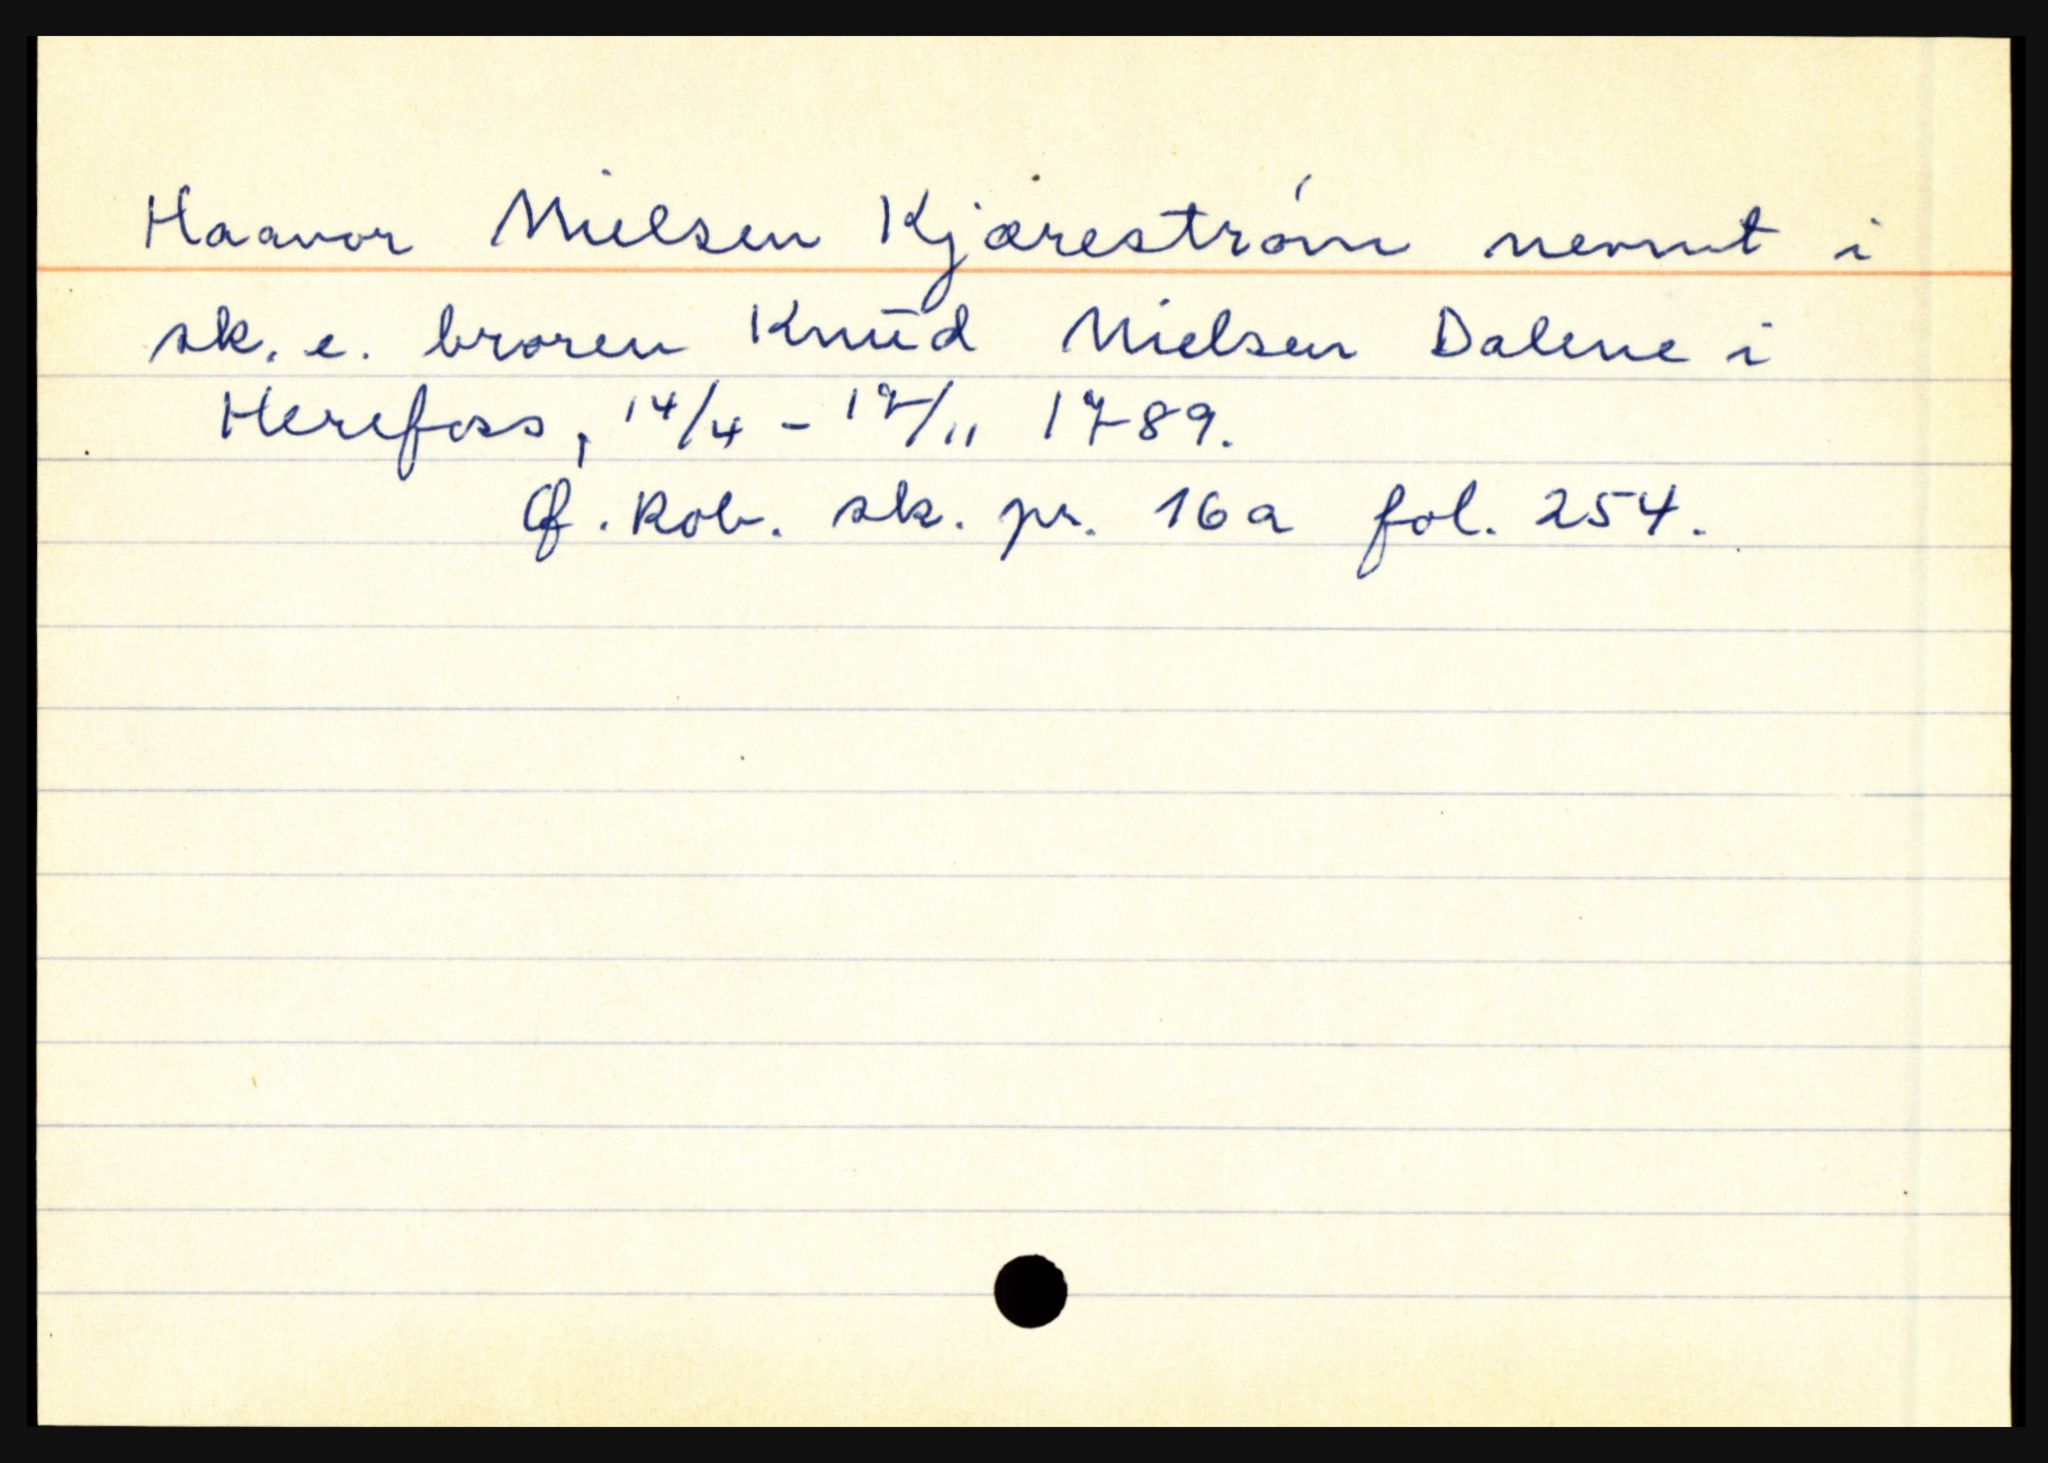 Haavor Nielsen Kjærestróm nevnt i
sk. e. broren Knud Nielsen Dalene i
Herefoss, 14/4 - 17/11 1789.
Ø. Rob. sk. pr. 16a fol. 254.